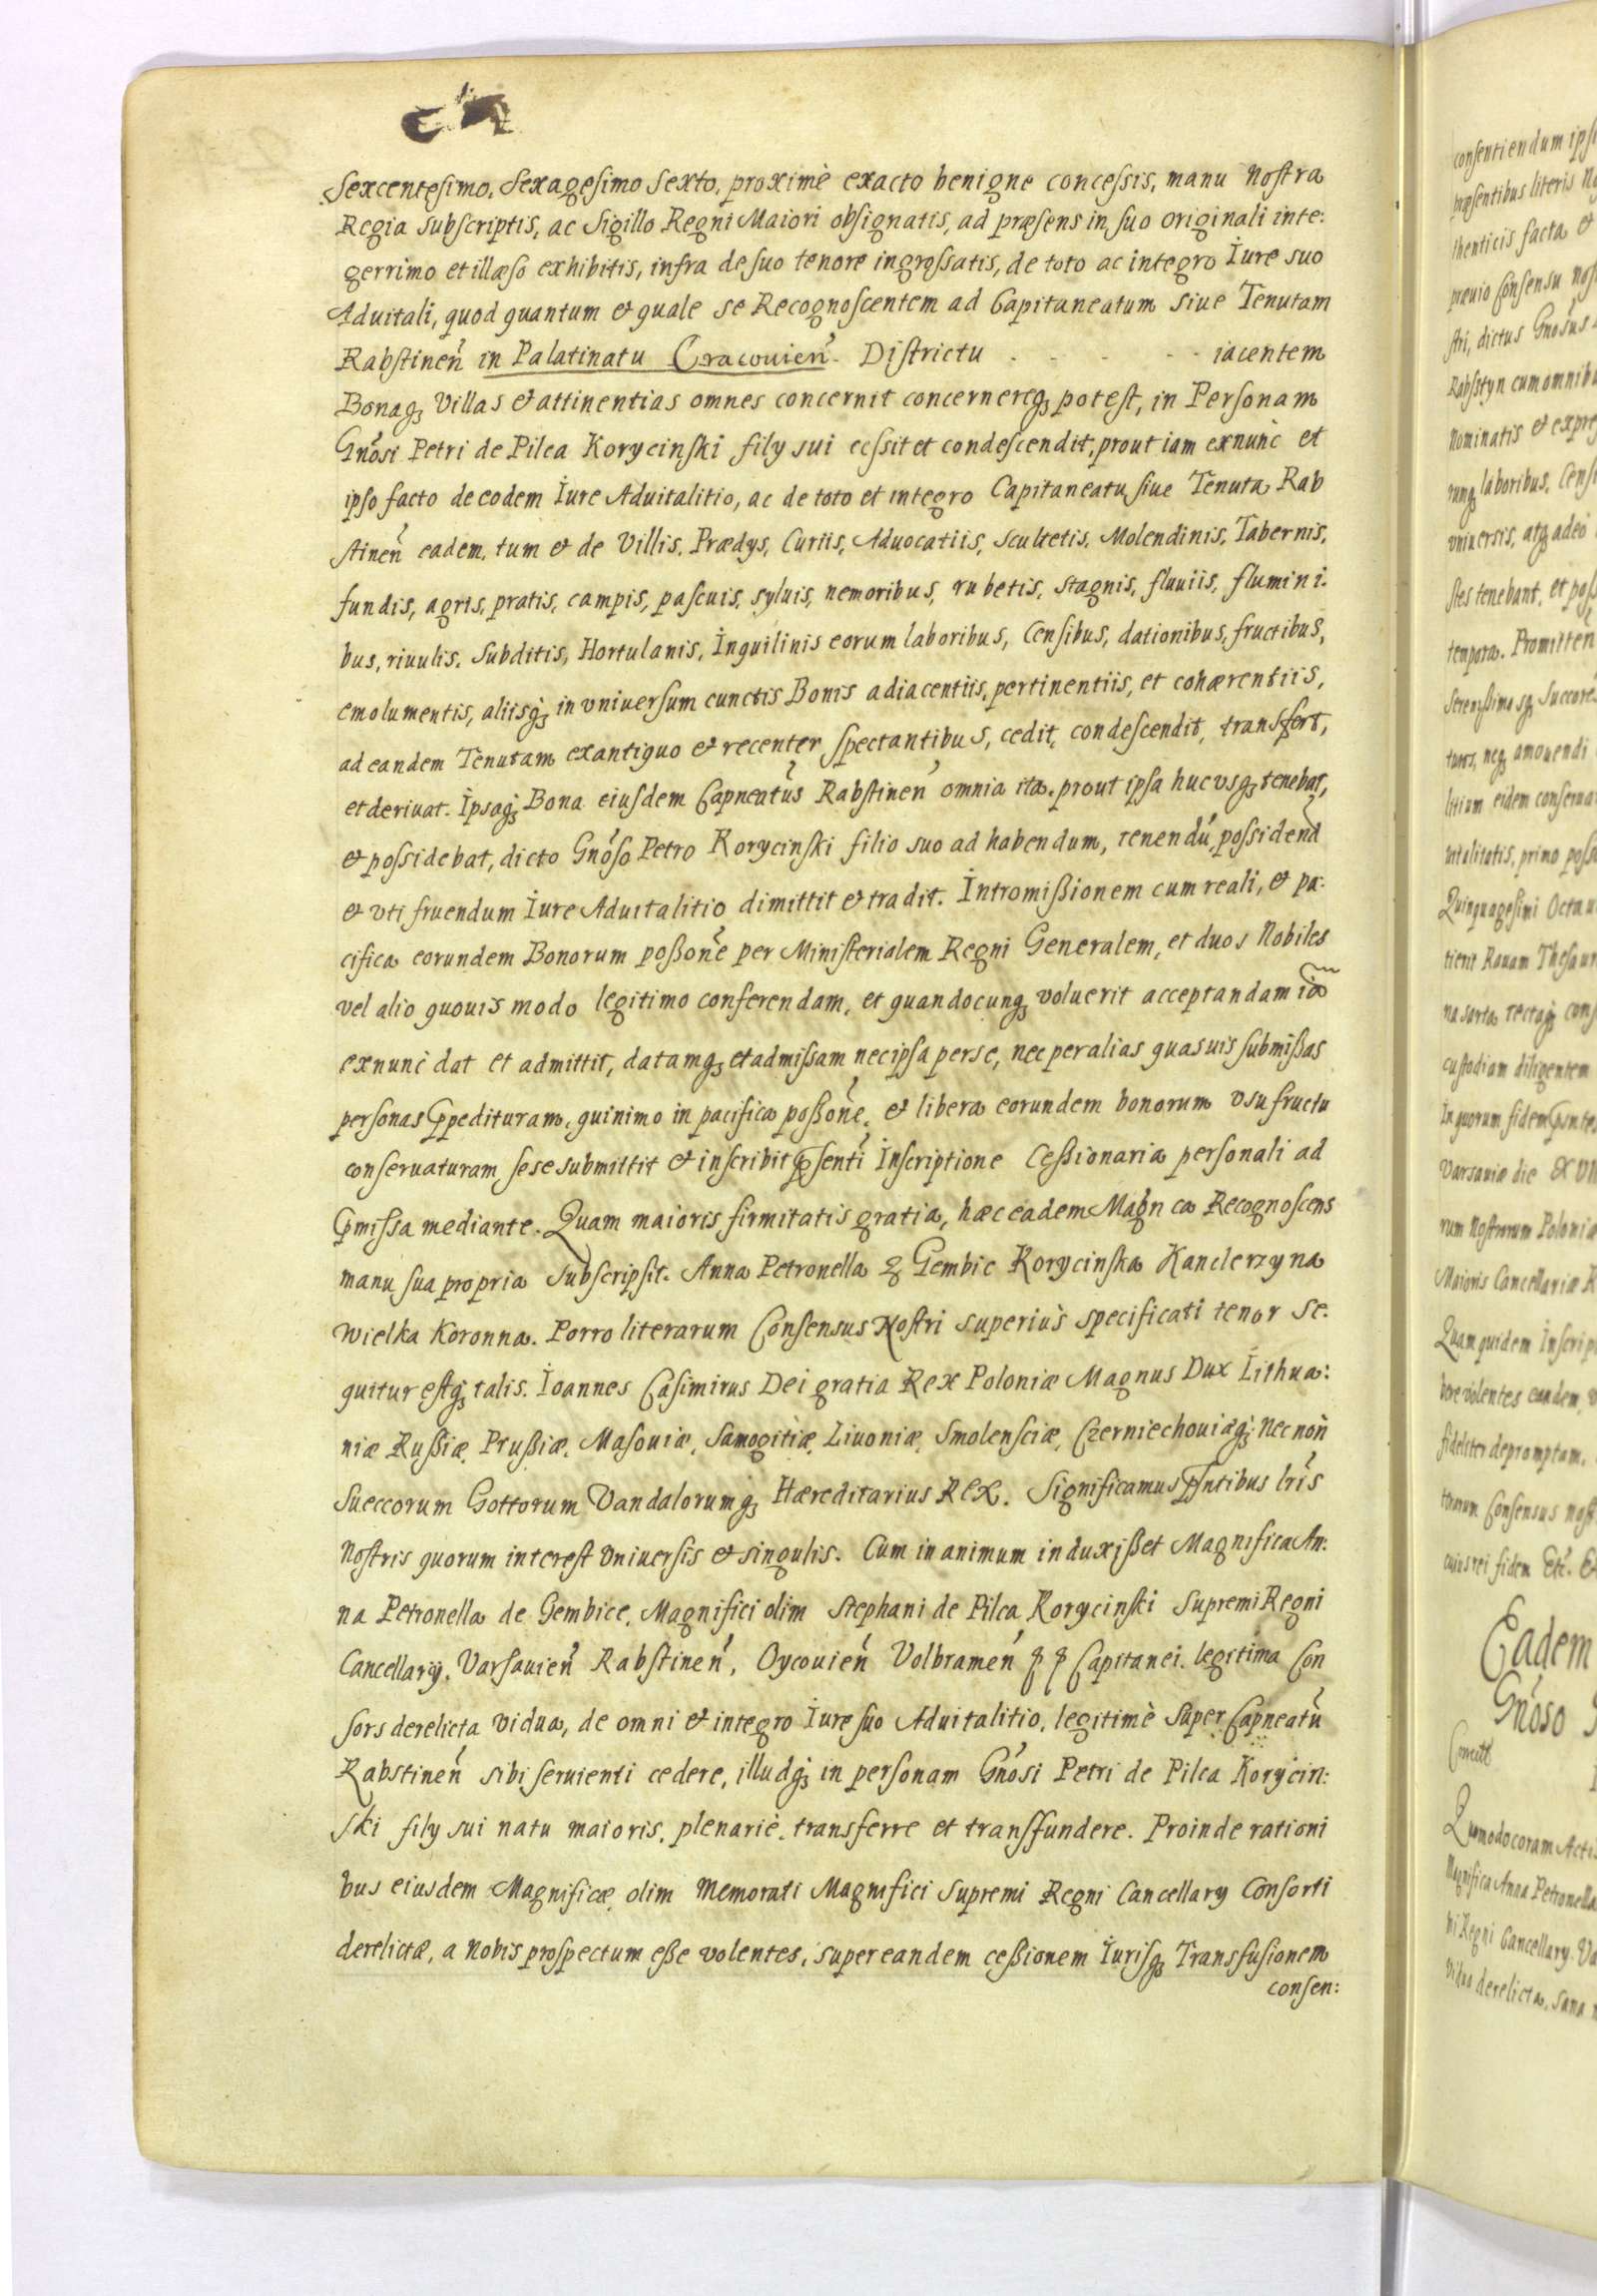 Sexcentesimo. Sexagesimo Sexto. proximè exacto benigne concessis, manu Nostra
Regia subscriptis, ac Sigillo Regni Maiori obsignatis, ad præsens in suo originali inte:
gerrimo et illæso exhibitis, infra de suo tenore ingrossatis, de toto ac integro Iure suo
Aduitali, quod quantum et quale se Recognoscentem ad Capitaneatum siue Tenutam
Rabstineñ in Palatinatu Cracouieñ. Districtu - - - - - iacentem
Bonaqꝫ Villas et attinentias omnes concernit concernereqꝫ potest, in Personam
Gnosi Petri de Pilca Korycinski fily sui cessit et condescendit, prout iam exnunc et
ipso facto de eodem Iure Aduitalitio, ac de toto et integro Capitaneatu siue Tenuta Rab
stineñ eadem. tum et de Villis. Prædys, Curiis, Aduocatiis, scultetis. Molendinis, Tabernis,
fundis, agris, pratis, campis, pascuis, syluis, nemoribus, rubetis, stagnis, fluuiis, flumini.
bus, riuulis. Subditis, Hortulanis, Inquilinis eorum laboribus, Censibus, dationibus, fructibus,
emolumentis, aliisqꝫ in vniuersum cunctis Bonis adiacentiis, pertinentiis, et cohærentiis,
ad eandem Tenutam exantiquo et recenter spectantibus, cedit, condescendit, transfert,
et deriuat. Ipsaqꝫ Bona eiusdem Capneatus Rabstineñ omnia ita. prout ipsa hucusqꝫ tenebat,
et possidebat, dicto Gnoso Petro Korycinski filio suo ad habendum, tenendu, possidend
et vti fruendum Iure Aduitalitio dimittit et tradit. Intromißionem cum reali, et pa:
cifica eorundem Bonorum poßone per Ministerialem Regni Generalem, et duos Nobiles
vel alio quouis modo legitimo conferendam, et quandocunqꝫ voluerit acceptandam ia
exnunc dat et admittit, datamqꝫ et admissam nec ipsa per se, nec per alias quasuis submißas
personas ꝓpedituram, quinimo in pacifica poßone, et libera eorundem bonorum vsufructu
conseruaturam, sese submittit et inscribit ꝓsenti Inscriptione Ceßionaria personali ad
ꝓmissa mediante. Quam maioris firmitatis gratia, hæc eadem Magn ca Recognoscens
manu sua propria subscripsit. Anna Petronella z Gembic Korycinska Kanclerzyna
Wielka Koronna. Porro literarum Consensus Nostri superius specificati tenor se.
quitur estqꝫ talis. Ioannes Casimirus Dei gratia Rex Poloniæ Magnus Dux Lithua:
niæ Rußiæ, Prußiæ, Masouiæ, Samogitiæ, Liuoniæ, Smolensciæ, Czerniechouiæqꝫ. Necnon
Sueccorum Gottorum Vandalorumqꝫ Hæreditarius Rex. Significamus ꝓntibus lris
Nostris quorum interest Vniuersis et singulis. Cum in animum induxißet Magnifica An:
na Petronella de Gembice, Magnifici olim Stephani de Pilca Korycinski Supremi Regni
Cancellarij. Varsauieñ Rabstineñ, Oycouieñ Volbrameñ ꝑ ꝑ Capitanei. legitima Con
sors derelicta vidua, de omni et integro Iure suo Aduitalitio, legitimè super Capneatu
Rabstineñ sibi seruienti cedere, illudqꝫ in personam Gnosi Petri de Pilca Korycin:
ski fily sui natu maioris, plenariè. transferre et transfundere. Proinde rationi
bus eiusdem Magnificæ, olim Memorati Magnifici Supremi Regni Cancellary Consorti
derelictæ, a Nobis prospectum eße volentes, super eandem ceßionem Iurisqꝫ Transfusionem
consen: